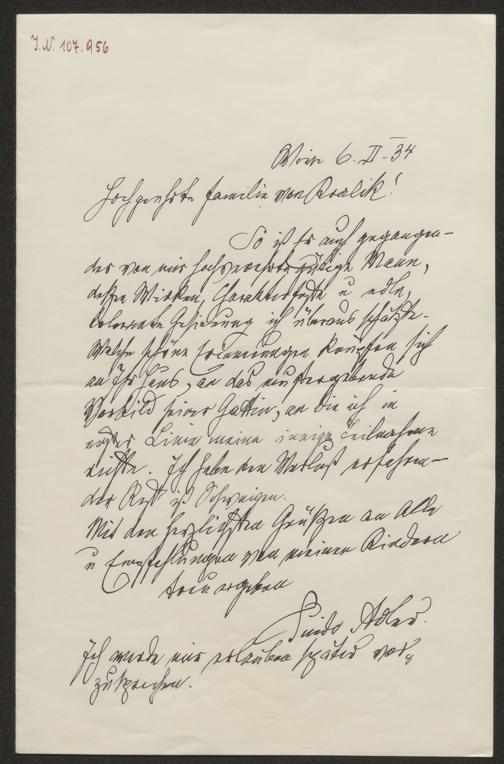 J.N. 107.956
Wien 6. II. 34
Hochgeehrte Familie von Kralik!
So ist Er auch gegangen –
der von mir hochverehrte gütige Mann,
dessen Wirken, Charakterfeste u edle,
tolerante Gesinnung ich überaus schätzte.
Welche schöne Erinnerungen knüpfen sich
an Ihr Haus, an das muttergebende
Vorbild seiner Gattin, an die ich in
erster Linie meine innige Teilnahme
richte. Ich habe den Verlust erfahren –
der Rest ist Schweigen.
Mit den herzlichsten Grüßen an Alle
u Empfehlungen von meinen Kindern
treu ergeben
Guido Adler.
Ich werde mir erlauben später vor
zusprechen.